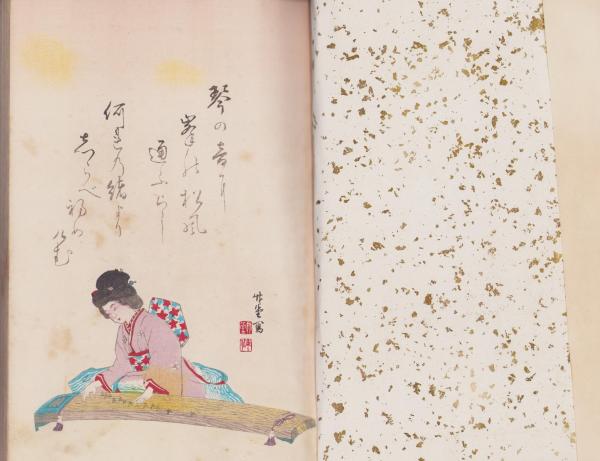 琴の音に
峯の松風
通ふらし
何れの緒より
しらべ初め
けむ